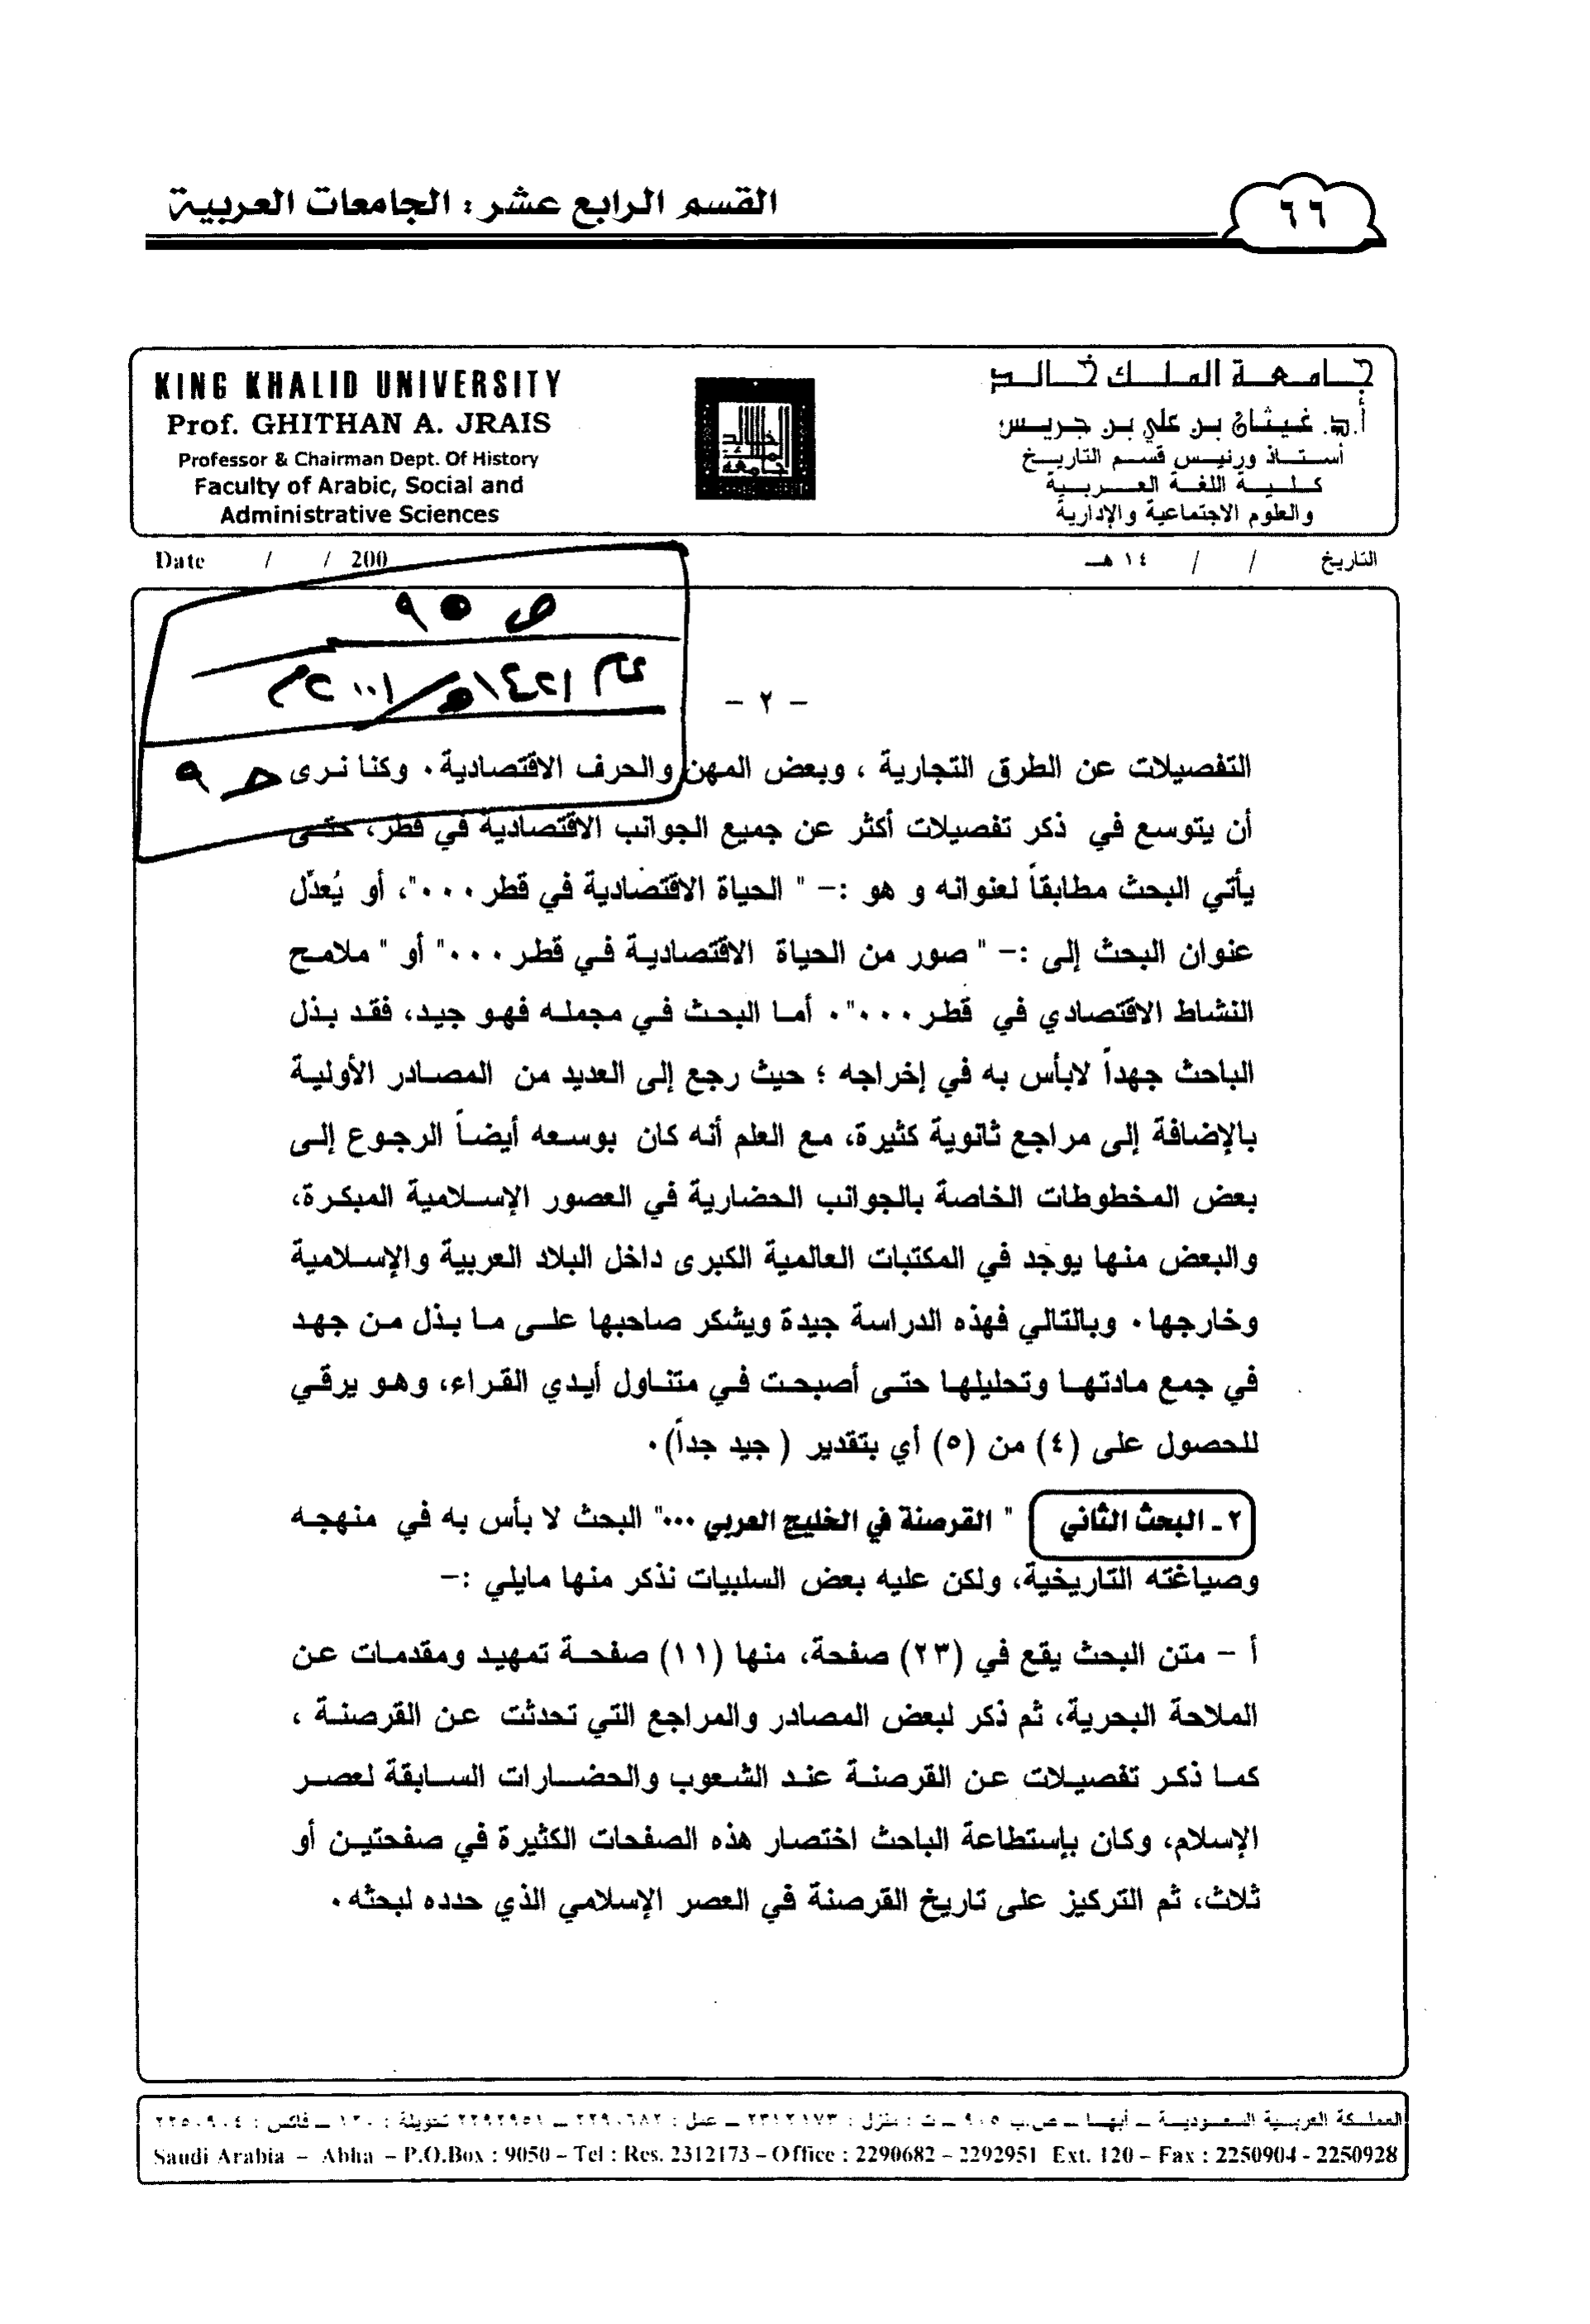 القسم الرابع عشر : الجامعات العربية
٦٦
جامعة الملك خالد
أ.د. غيثان بن علي بن جريس
أستاذ ورئيس قسم التاريخ
كلية اللغة العربية
والعلوم الاجتماعية والإدارية
KING KHALID UNIVERSITY
Prof. GHITHAN A. JRAIS
Professor & Chairman Dept. Of History
Faculty of Arabic, Social and
Administrative Sciences
خالد
الملك
جامعة
التاريخ / / ١٤ هـ
Date / / 200
ص ٩٥
عام ١٤٢١هـ/٢٠٠١م
حـ ٩
- ٢ -
التفصيلات عن الطرق التجارية ، وبعض المهن والحرف الاقتصادية . وكنا نرى
أن يتوسع في ذكر تفصيلات أكثر عن جميع الجوانب الاقتصادية في قطر، حتى
يأتي البحث مطابقاً لعنوانه و هو :- " الحياة الاقتصادية في قطر..."، أو يُعدّل
عنوان البحث إلى :- " صور من الحياة الاقتصادية في قطر..." أو " ملامح
النشاط الاقتصادي في قطر...". أما البحث في مجمله فهو جيد، فقد بذل
الباحث جهداً لابأس به في إخراجه ؛ حيث رجع إلى العديد من المصادر الأولية
بالإضافة إلى مراجع ثانوية كثيرة، مع العلم أنه كان بوسعه أيضاً الرجوع إلى
بعض المخطوطات الخاصة بالجوانب الحضارية في العصور الإسلامية المبكرة،
والبعض منها يوجد في المكتبات العالمية الكبرى داخل البلاد العربية والإسلامية
وخارجها. وبالتالي فهذه الدراسة جيدة ويشكر صاحبها على ما بذل من جهد
في جمع مادتها وتحليلها حتى أصبحت في متناول أيدي القراء، وهو يرقي
للحصول على (٤) من (٥) أي بتقدير ( جيد جداً).
٢ـ البحث الثاني " القرصنة في الخليج العربي ..." البحث لا بأس به في منهجه
وصياغته التاريخية، ولكن عليه بعض السلبيات نذكر منها مايلي :-
أ - متن البحث يقع في (٢٣) صفحة، منها (١١) صفحة تمهيد ومقدمات عن
الملاحة البحرية، ثم ذكر لبعض المصادر والمراجع التي تحدثت عن القرصنة ،
كما ذكر تفصيلات عن القرصنة عند الشعوب والحضارات السابقة لعصر
الإسلام، وكان بإستطاعة الباحث اختصار هذه الصفحات الكثيرة في صفحتين أو
ثلاث، ثم التركيز على تاريخ القرصنة في العصر الإسلامي الذي حدده لبحثه.
المملكة العربية السعودية – أبها – ص.ب ٩٠٥ – ت : منزل : ٢٣١٢١٧٣ – عمل : ٢٢٩٠٦٨٢ – ٢٢٩٢٩٥١ تحويلة : ١٢٠ – فاكس : ٢٢٥٠٩٠٤
Saudi Arabia – Abha – P.O.Box : 9050 – Tel : Res. 2312173 – Office : 2290682 – 2292951 Ext. 120 – Fax : 2250904 - 2250928